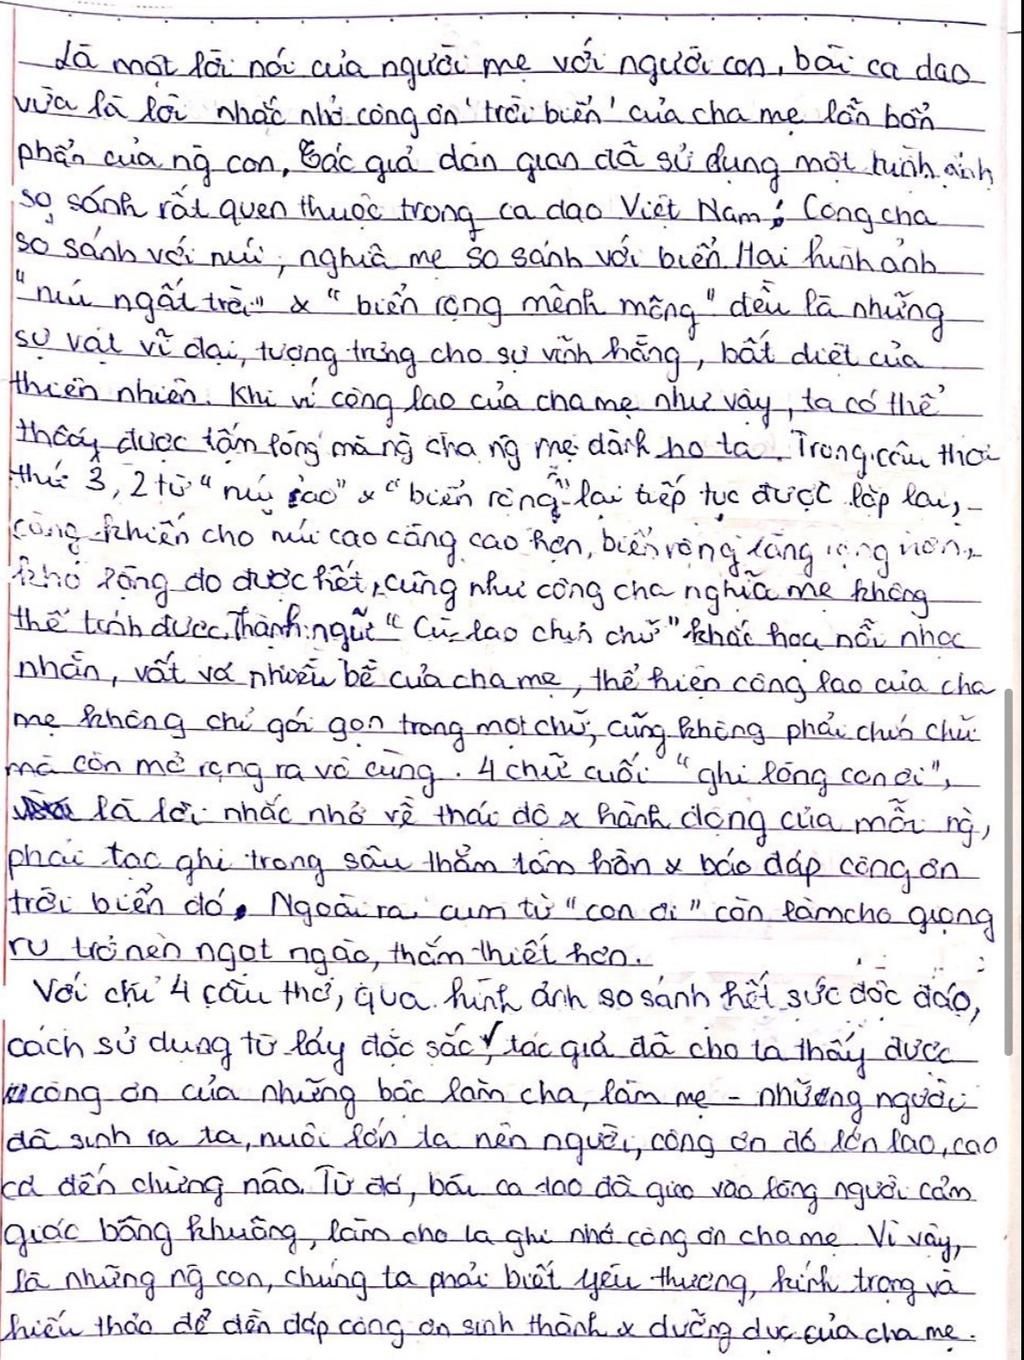 Là một lời nói của người mẹ với người con, bài ca dao
vừa là lời nhắc nhở công ơn 'trời biển' của cha mẹ lẫn bổn
phận của ng con, tác giả dân gian đã sử dụng một hình ảnh
so sánh rất quen thuộc trong ca dao Việt Nam; Công cha
so sánh với núi, nghĩa mẹ so sánh với biển. Hai hình ảnh
"núi ngất trời" x "biển rộng mênh mông" đều là những
sự vật vĩ đại, tượng trưng cho sự vĩnh hằng, bất diệt của
thiên nhiên. Khi ví công lao của cha mẹ như vậy, ta có thể
thấy được tấm lòng mà ng cha ng mẹ dành ho ta. Trong câu thơ
thứ 3, 2 từ "núi cao" x "biển rộng" lại tiếp tục được lặp lại,
càng khiến cho núi cao càng cao hơn, biển rộng càng rộng hơn,
khó lòng đo được hết, cũng như công cha nghĩa mẹ không
thể tính được. Thành ngữ "Cù lao chín chữ" khắc hoạ nỗi nhọc
nhằn, vất vả nhiều bề của cha mẹ, thể hiện công lao của cha
mẹ không chỉ gói gọn trong một chữ, cũng không phải chín chữ
mà còn mở rộng ra vô cùng. 4 chữ cuối "ghi lòng con ơi",
là lời nhắc nhở về thái độ x hành động của mỗi ng,
phải tạc ghi trong sâu thẳm tâm hồn x báo đáp công ơn
trời biển đó. Ngoài ra, cụm từ "con ơi" còn làm cho giọng
ru trở nên ngọt ngào, thắm thiết hơn.
Với chỉ 4 câu thơ, qua hình ảnh so sánh hết sức độc đáo,
cách sử dụng từ láy đặc sắc, tác giả đã cho ta thấy được
công ơn của những bậc làm cha, làm mẹ - những người
đã sinh ra ta, nuôi lớn ta nên người, công ơn đó lớn lao, cao
cả đến chừng nào. Từ đó, bài ca dao đã gieo vào lòng người cảm
giác bâng khuâng, làm cho ta ghi nhớ công ơn cha mẹ. Vì vậy,
là những ng con, chúng ta phải biết yêu thương, kính trọng và
hiếu thảo để đền đáp công ơn sinh thành x dưỡng dục của cha mẹ.